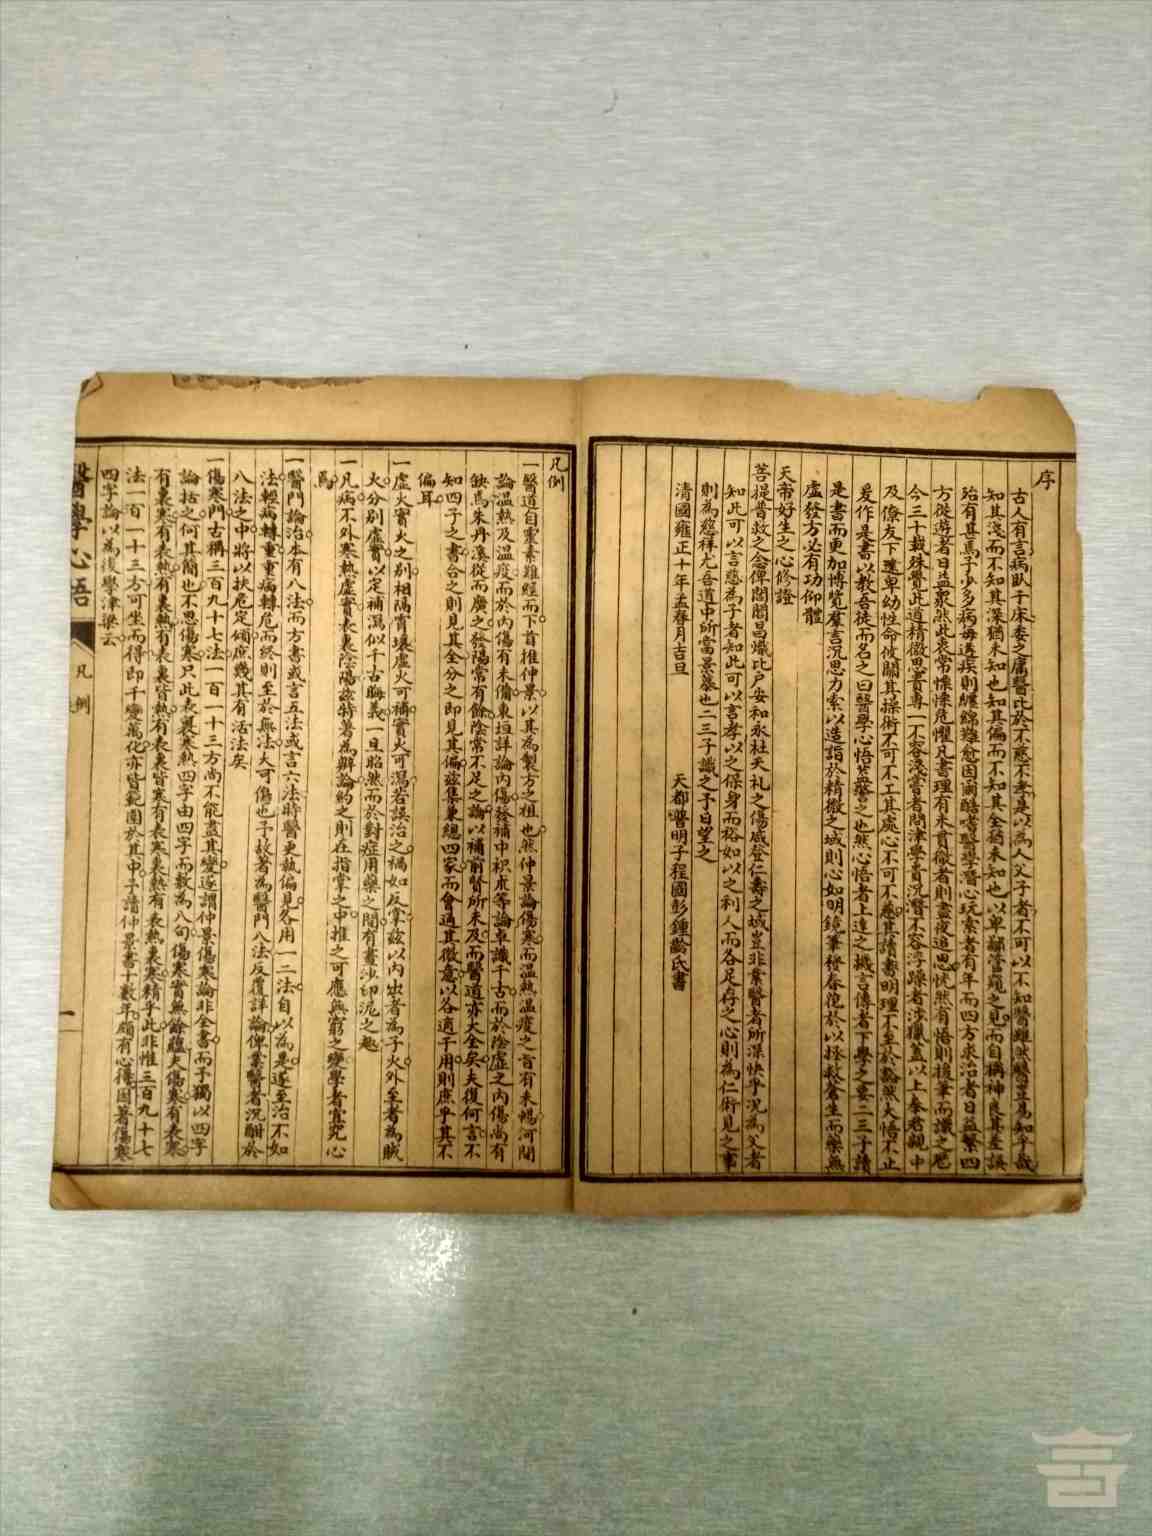 序
古人有言病臥于床委之庸醫比於不慈不孝是以為人父子者不可以不知醫雖然醫豈易知乎哉
知其淺而不知其深猶未知也知其偏而不知其全猶未知也以卑鄙管窺之見而自稱神良其差誤
殆有甚焉予少多病每遘疾則纏綿難愈因爾酷嗜醫學潛心玩索者有年而四方求治者日益繁四
方從遊者日益衆然此衷常慄慄危懼凡書理有未貫徹者則晝夜追思恍然有悟則援筆而識之歷
今三十載殊覺此道精微思貴專一不容淺嘗者問津學貴沉潛不容浮躁者涉獵蓋以上奉君親中
及僚友下逮卑幼性命攸關其操術不可不工其處心不可不慈其讀書明理不至於豁然大悟不止
爰作是書以教吾徒而名之曰醫學心悟蓋警之也然心悟者上達之機言傳者下學之要二三子讀
是書而更加博覽羣言沉思力索以造詣於精微之域則心如明鏡筆發春花於以拯救蒼生而藥無
虛發方必有功仰體
天帝好生之心修證
菩提普救之念俾閭閻昌熾比戶安和永杜夭札之傷咸登仁壽之域豈非業醫者所深快乎況為父者
知此可以言慈為子者知此可以言孝以之保身而裕如以之利人而各足存之心則為仁術見之事
則為慈祥尤吾道中所當景慕也二三子識之予日望之
清國雍正十年孟春月吉旦 天都普明子程國彭鍾齡氏書
凡例
一醫道自靈素難經而下首推仲景以其為製方之祖也然仲景論傷寒而溫熱溫疫之旨有未暢河間
論溫熱及溫疫而於內傷有未備東垣詳論內傷發補中枳朮等論卓識千古而於陰虛之內傷尚有
缺焉朱丹溪從而廣之發陽常有餘陰常不足之論以補前賢所未及而醫道亦大全矣夫復何言不
知四子之書合之則見其全分之即見其偏茲集兼總四家而會通其微意以各適于用則庶乎其不
偏耳
一虛火實火之別相隔霄壤虛火可補實火可瀉若誤治之禍如反掌茲以內出者為子火外至者為賊
火分別虛實以定補瀉似千古晦義一旦昭然而於對症用藥之間有畫沙印泥之趣
一凡病不外寒熱虛實表裏陰陽茲特著為辯論約之則在指掌之中推之可應無窮之變學者宜究心
焉
一醫門論治本有八法而方書或言五法或言六法時醫更執偏見各用一二法自以為是遂至治不如
法輕病轉重重病轉危而終則至於無法大可傷也予故著為醫門八法反覆詳論俾業醫者沉酣於
八法之中將以扶危定傾庶幾其有活法矣
一傷寒門古稱三百九十七法一百一十三方尚不能盡其變遂謂仲景傷寒論非全書而予獨以四字
論括之何其簡也不思傷寒只此表裏寒熱四字由四字而敷為八句傷寒實無餘蘊夫傷寒有表寒
有裏寒有表熱有裏熱有表裏皆熱有表裏皆寒有表寒裏熱有表熱裏寒精乎此非惟三百九十七
法一百一十三方可坐而得即千變萬化亦皆範圍於其中予讀仲景書十數年頗有心得因著傷寒
四字論以為後學津梁云
醫學心悟 凡例 一